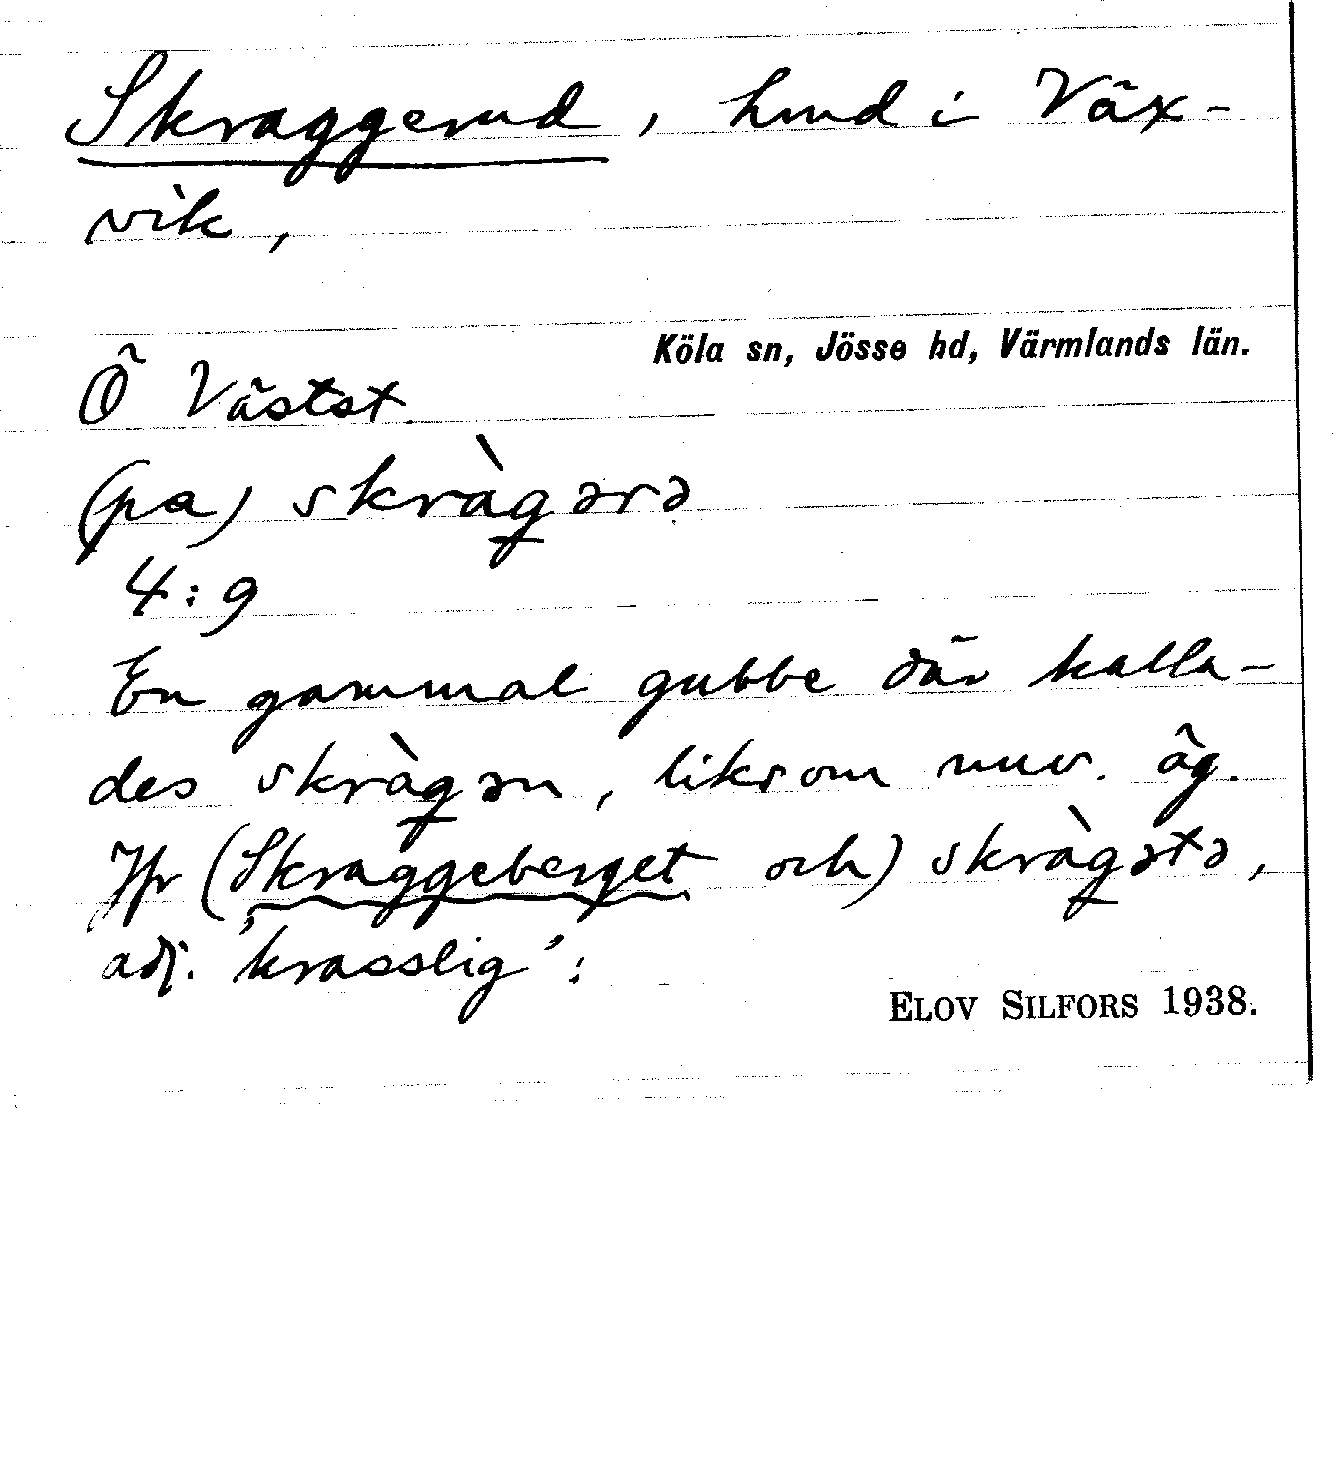 Skraggerud, hmd i Väx-
vik,
Köla sn, Jösse hd, Värmlands län.
Ö Västst
(pa) skràg̱ərə
4:9
En gammal gubbe där kalla-
des skràg̱ən, liksom nuv. äg.
Jfr (Skraggeberget och) skràg̱ətə,
adj. 'krasslig':
ELOV SILFORS 1938.